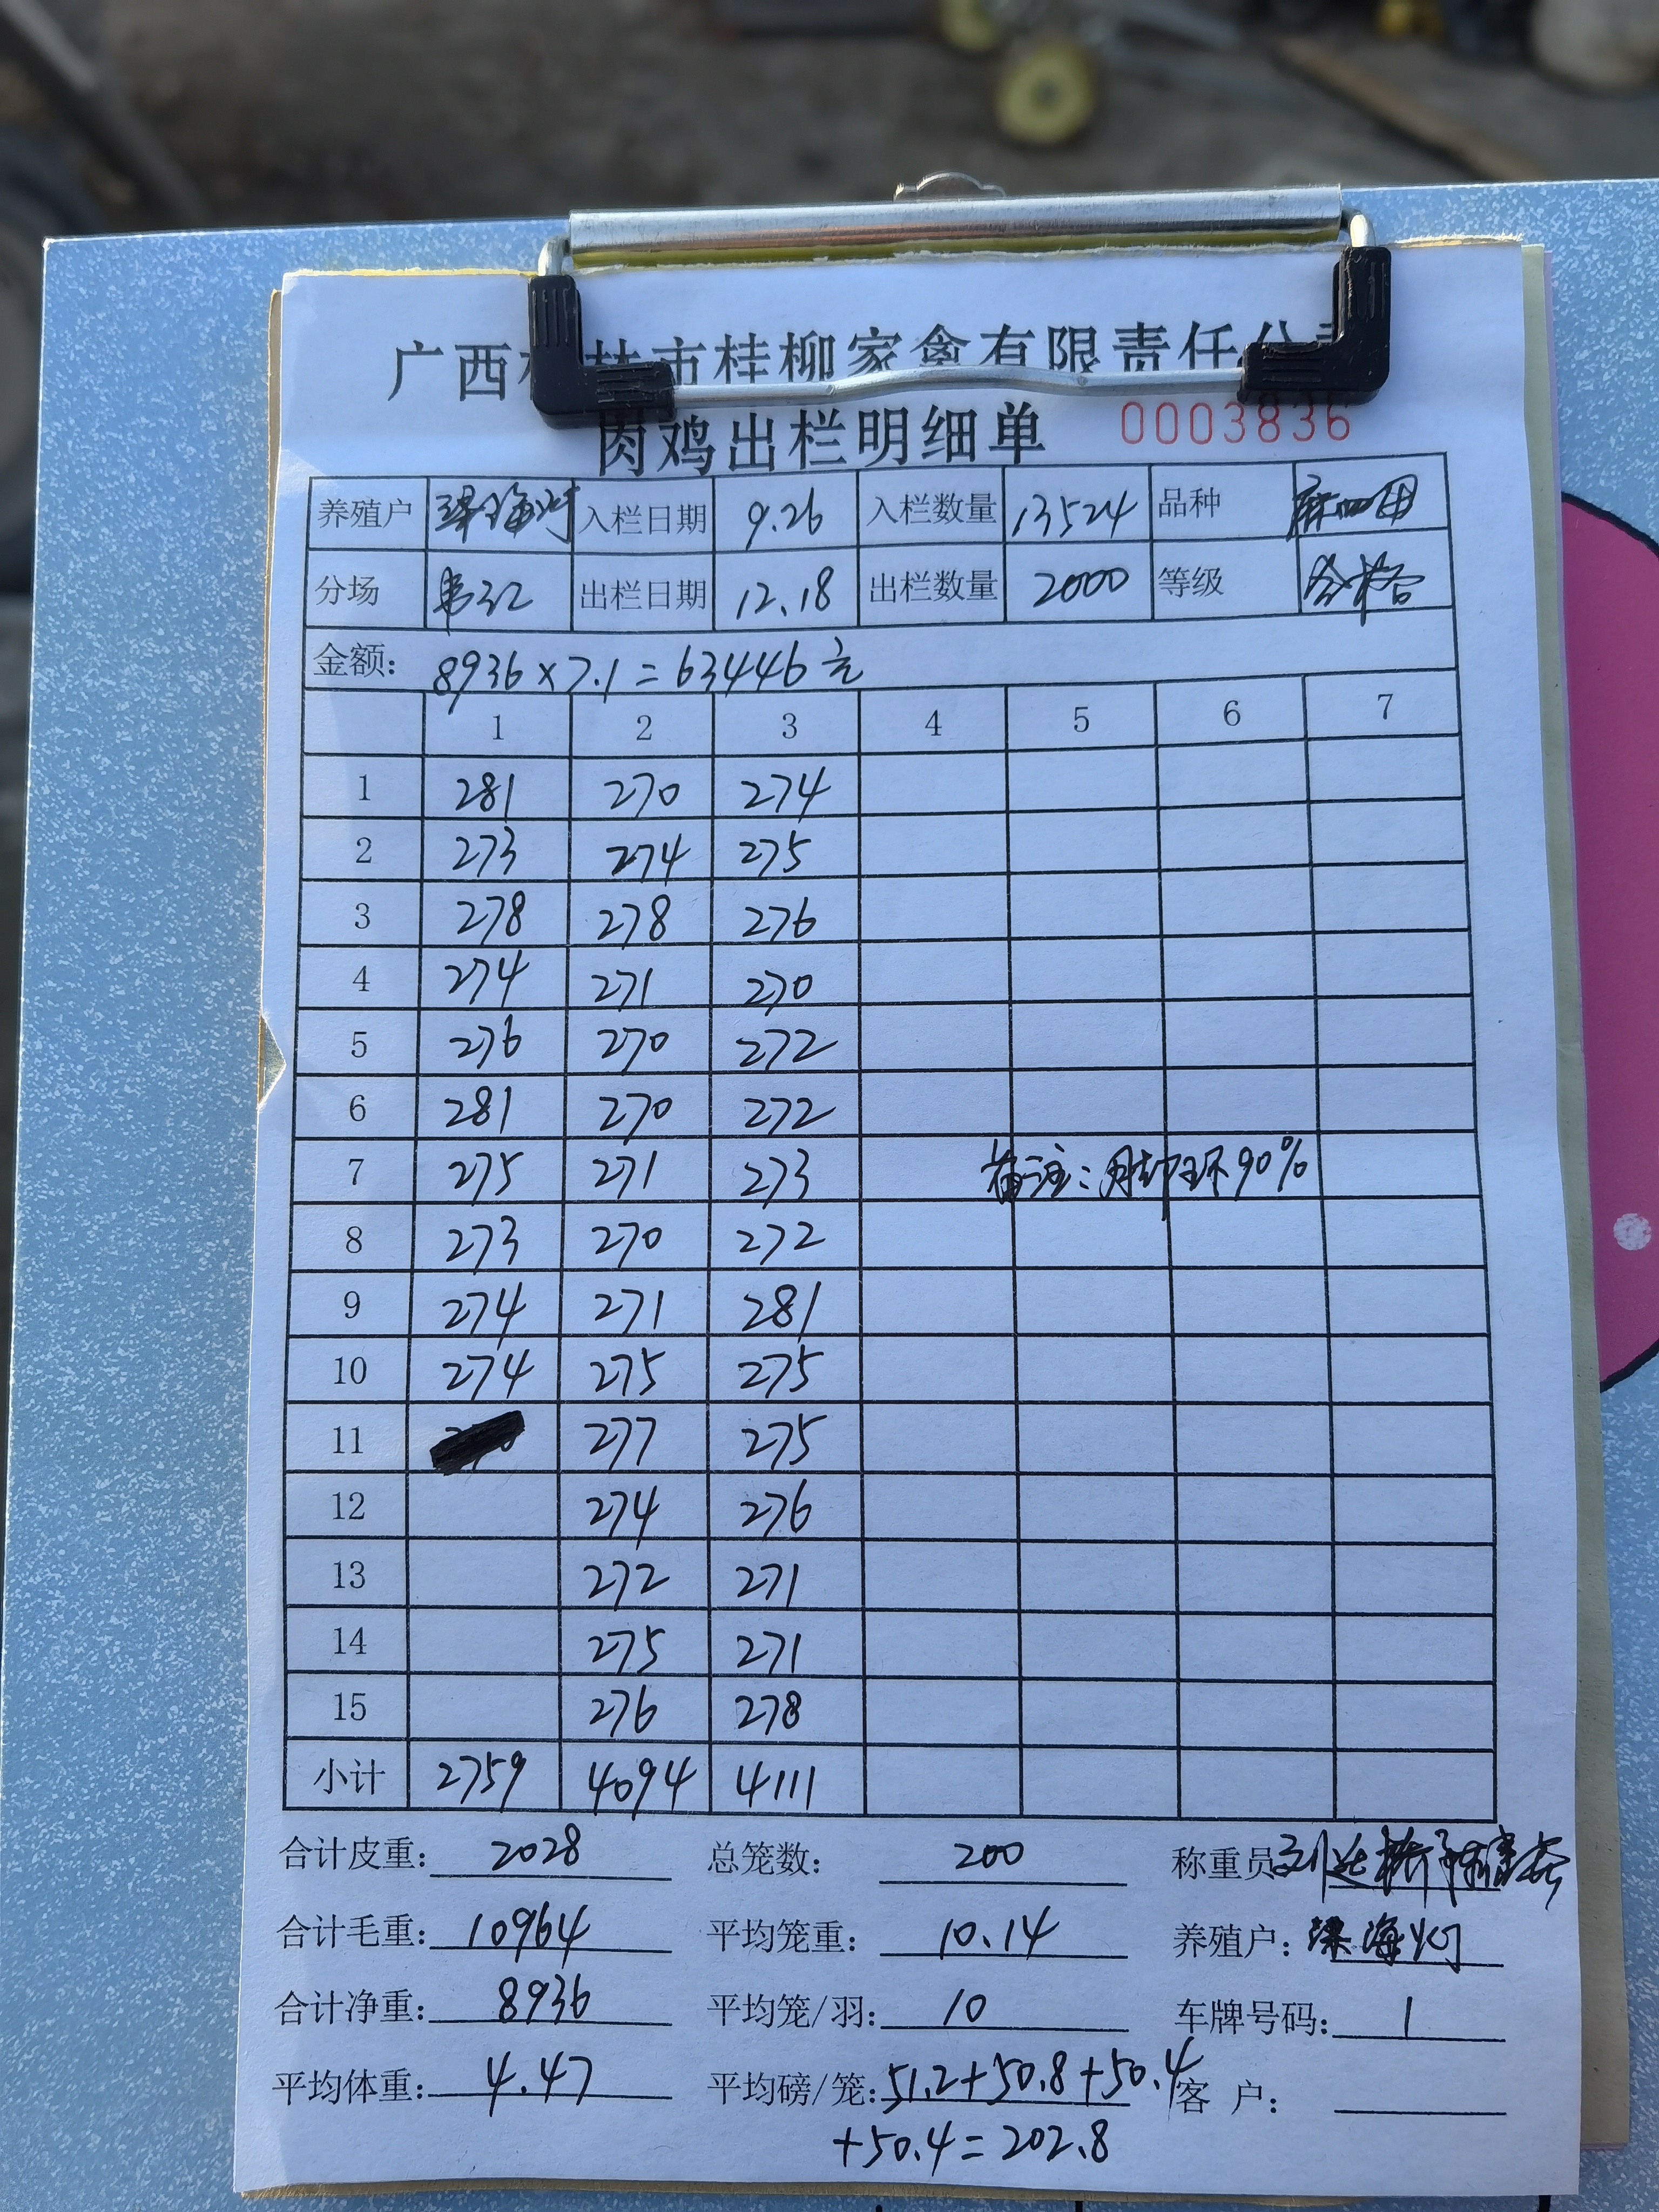 广西 林市桂柳家禽有限责任公司
肉鸡出栏明细单 0003836
养殖户 梁海灯 入栏日期 9.26 入栏数量 13524 品种
分场 出栏日期 12.18 出栏数量 2000 等级 合格
金额: 8936×7.1=63446元
1 2 3 4 5 6 7
1 281 270 274
2 273 274 275
3 278 278 276
4 274 271 270
5 276 270 272
6 281 270 272
7 275 271 273 备注:用脚环90%
8 273 270 272
9 274 271 281
10 274 275 275
11 277 275
12 274 276
13 272 271
14 275 271
15 276 278
小计 2759 4094 4111
合计皮重: 2028 总笼数: 200 称重员
合计毛重: 10964 平均笼重: 10.14 养殖户: 梁海灯
合计净重: 8936 平均笼/羽: 10 车牌号码: 1
平均体重: 4.47 平均磅/笼: 51.2+50.8+50.4 客户:
+50.4=202.8